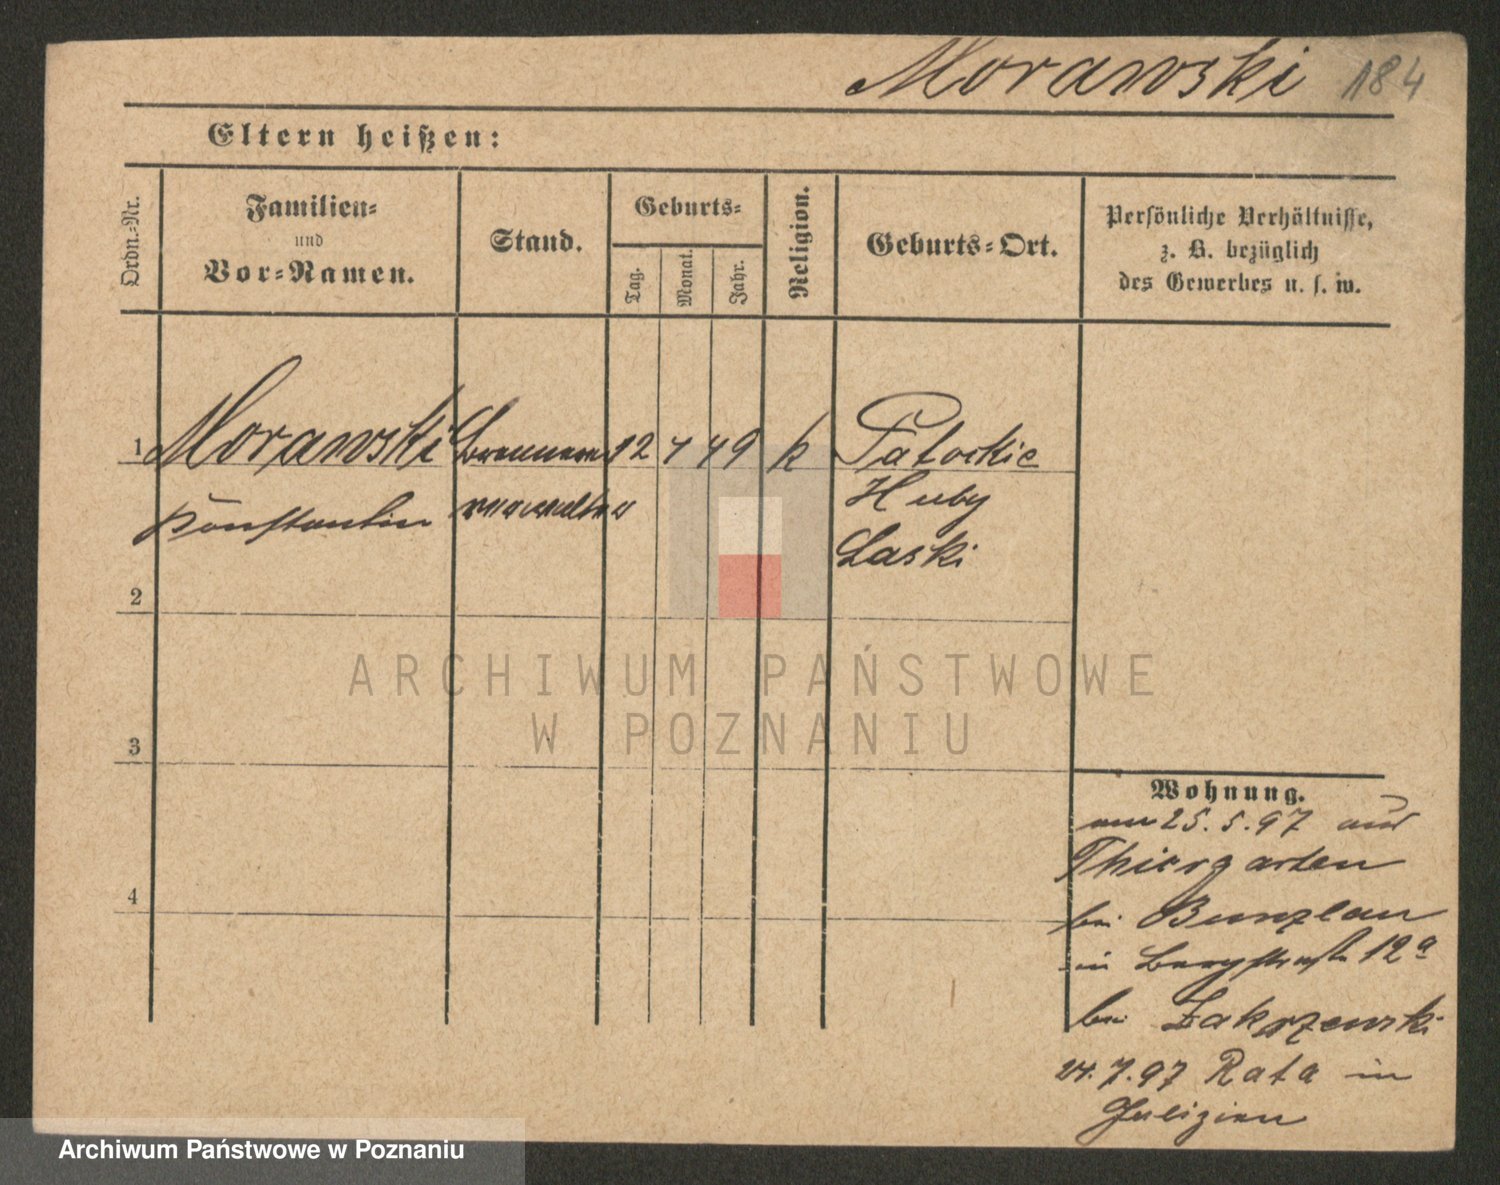 Morawski 184
Eltern heißen:
Ordn.-Nr.
Familien-
und
Vor-Namen.
Stand.
Geburts-
Tag.
Monat.
Jahr.
Religion.
Geburts-Ort.
Persönliche Verhältnisse,
z. B. bezüglich
des Gewerbes u. s. w.
1 Morawski Brennerei 12 4 49 k
Konstantin verwalter
Huby
Laski
2
3
4
ARCHIWUM PAŃSTWOWE
W POZNANIU
Wohnung.
am 25. 5. 97 aus
Thiergarten
bei Bunzlau
in Bergstraße 12a
bei Zakrzewski
24. 7. 97 Rata in
Galizien
Archiwum Państwowe w Poznaniu